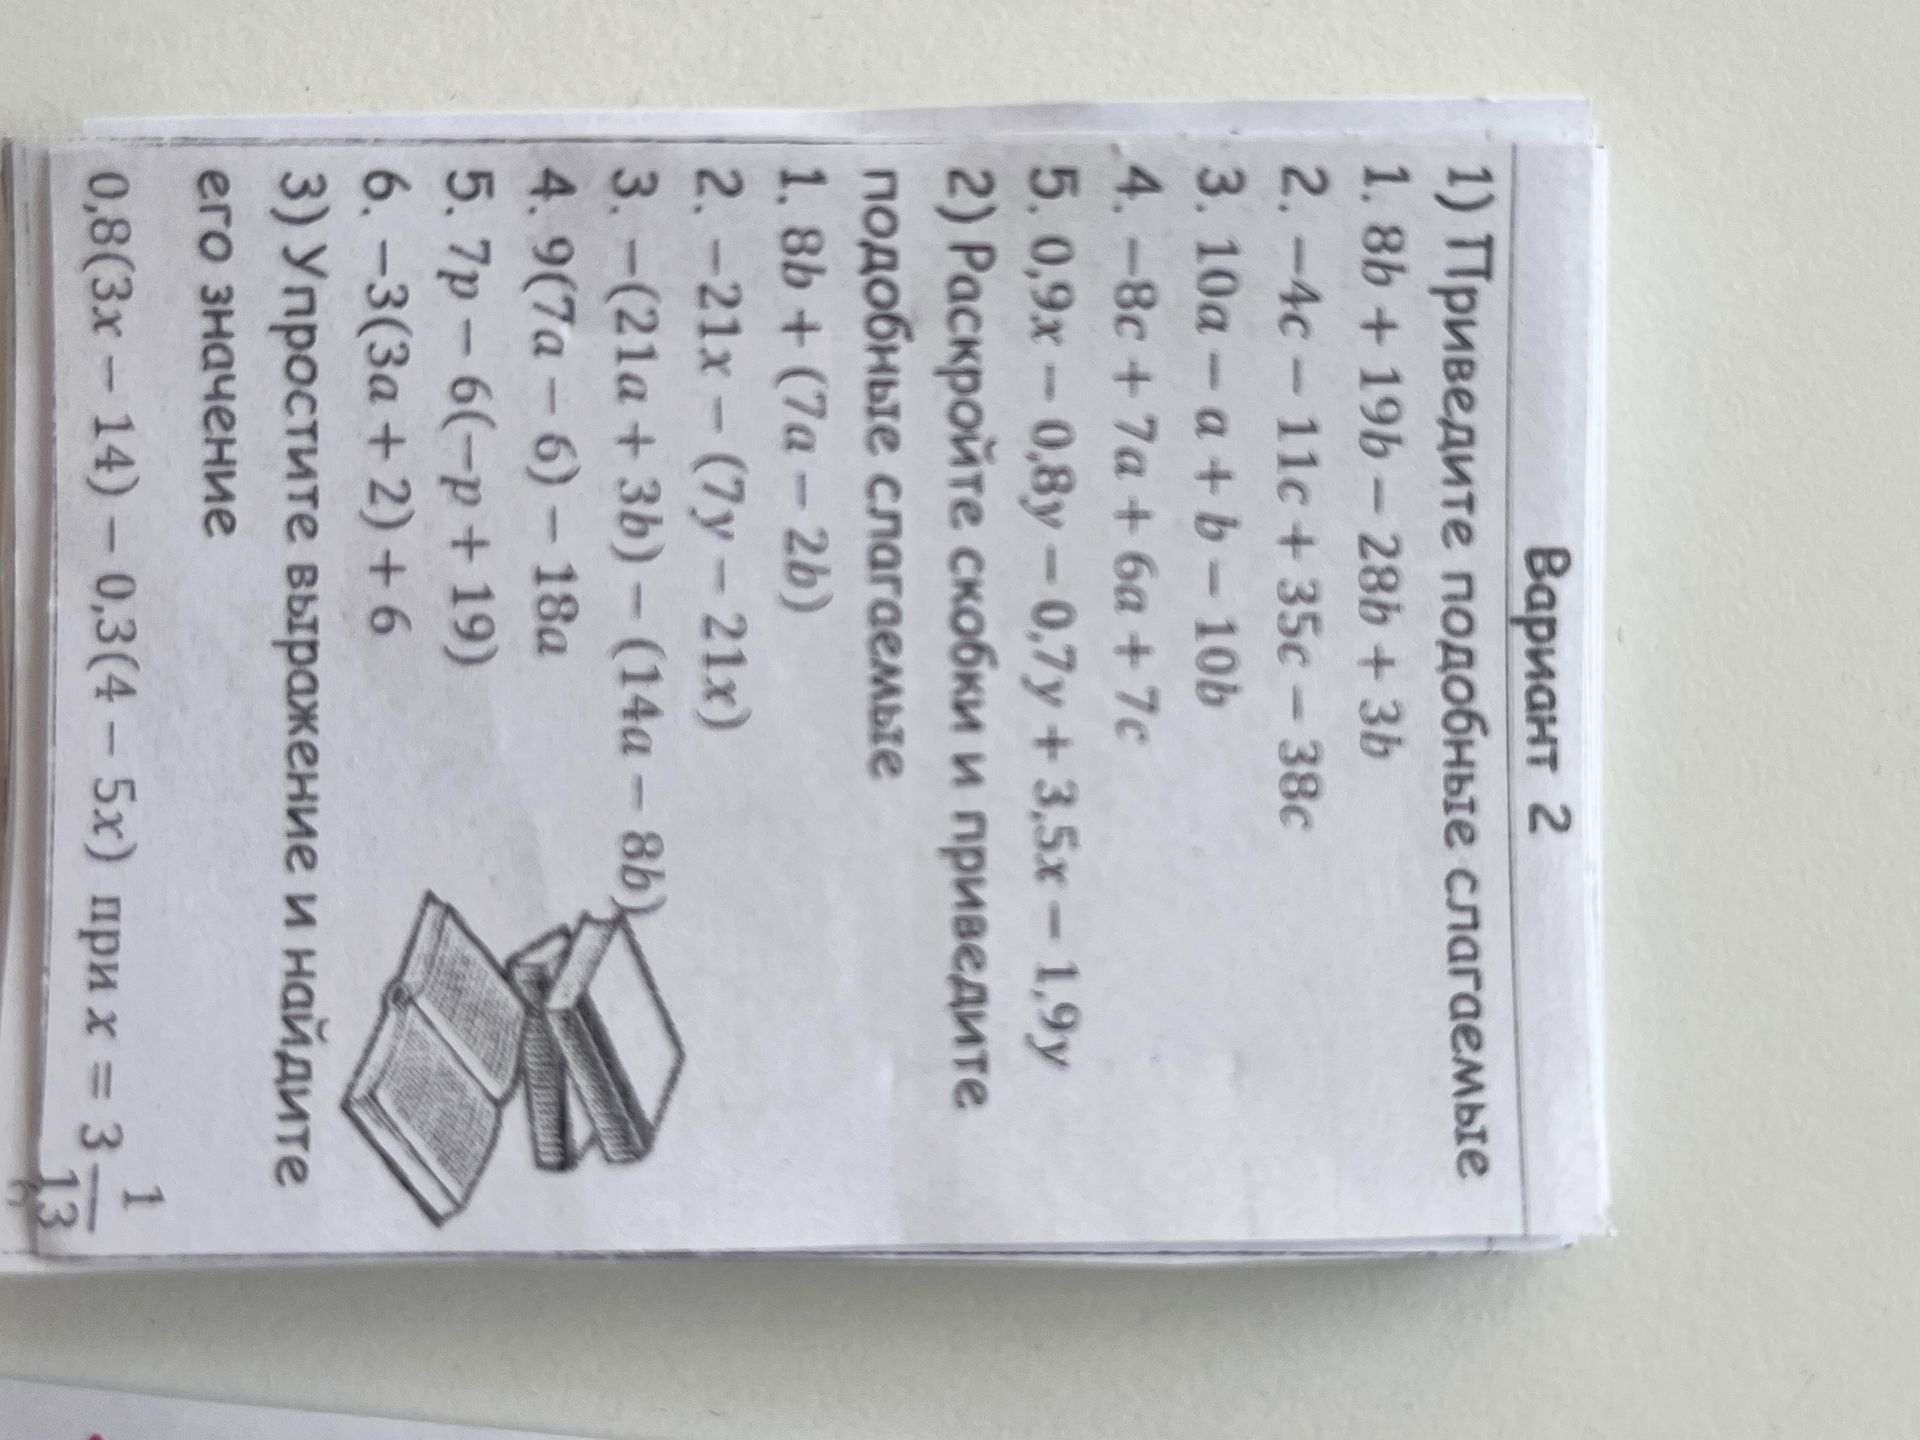 Вариант 2
1) Приведите подобные слагаемые
1. 8b + 19b − 28b + 3b
2. −4c − 11c + 35c − 38c
3. 10a − a + b − 10b
4. −8c + 7a + 6a + 7c
5. 0,9x − 0,8y − 0,7y + 3,5x − 1,9y
2) Раскройте скобки и приведите
подобные слагаемые
1. 8b + (7a − 2b)
2. −21x − (7y − 21x)
3. −(21a + 3b) − (14a − 8b)
4. 9(7a − 6) − 18a
5. 7p − 6(−p + 19)
6. −3(3a + 2) + 6
3) Упростите выражение и найдите
его значение
0,8(3x − 14) − 0,3(4 − 5x) при x = 3 1/13